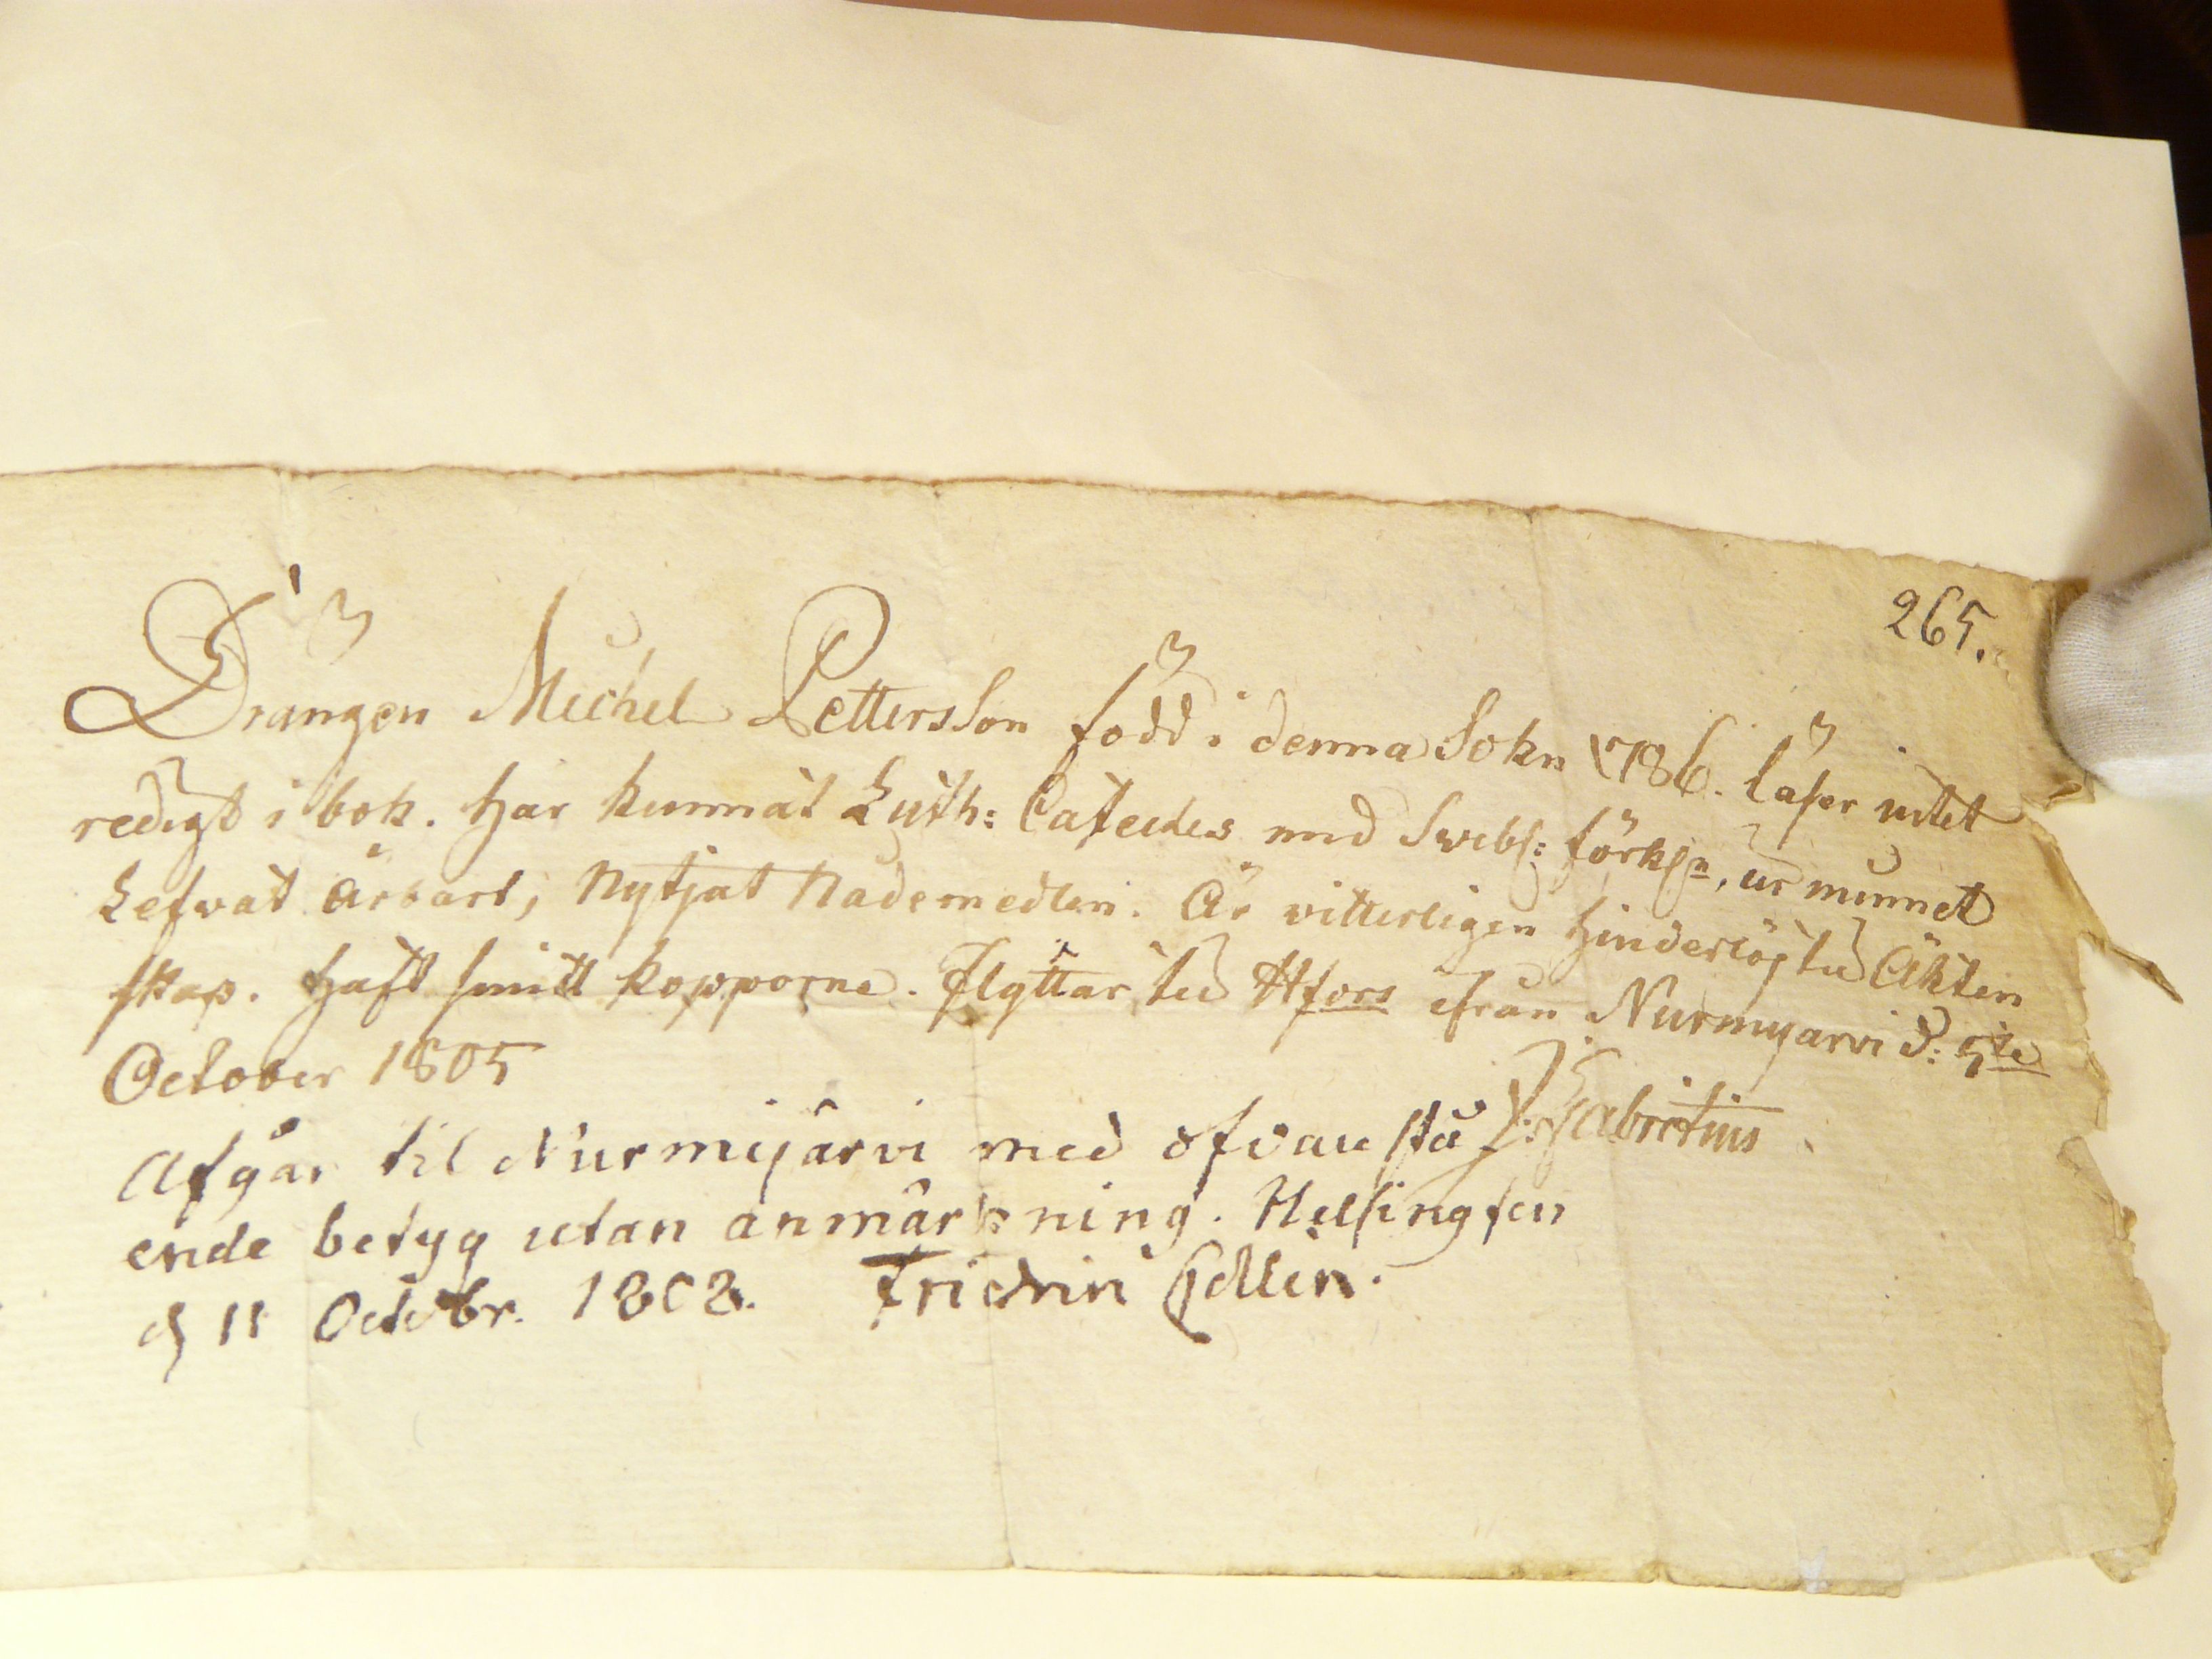 265.
Drängen Michel Pettersson född i denna Sokn 1786. läser
redigt i bok. har kunnat Luth: Cateches med Swebel: förkl:n, ur minnet
Lefvat ärbart, Nytjat Nådemedlen. Är vitterligen hinderlös til Äkten
skap. haft smitt kopporne. Flyttar til Hfors ifrån Nurmijarvi d: 5te
October 1805
Afgår til Nurmijärvi med ofvan stå
ende betyg utan anmärkning. Helsingfors
d 11 Octobr. 1808.